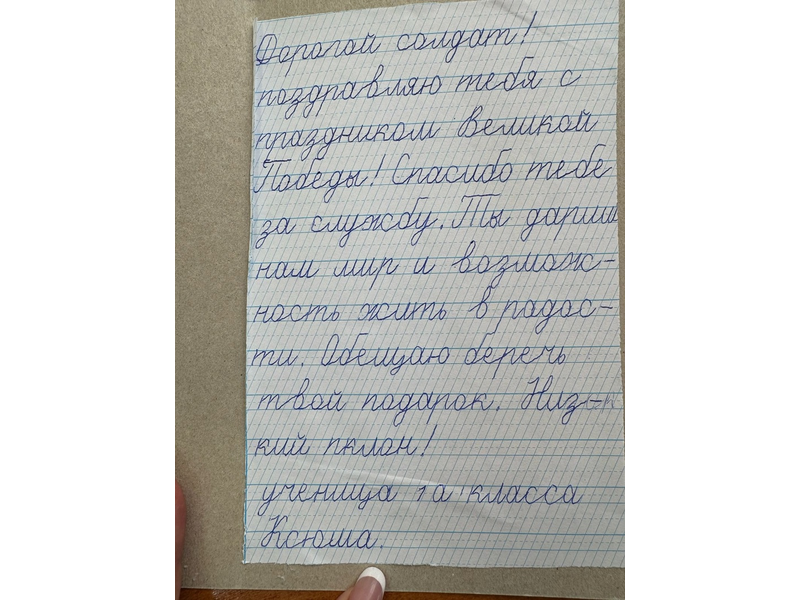 Дорогой солдат!
поздравляю тебя с
праздником Великой
Победы! Спасибо тебе
за службу. Ты дариш
нам мир и возмож-
ность жить в радос-
ти. Обещаю беречь
твой подарок. Низ-
кий пклон!
ученица 1а класса
Ксюша.